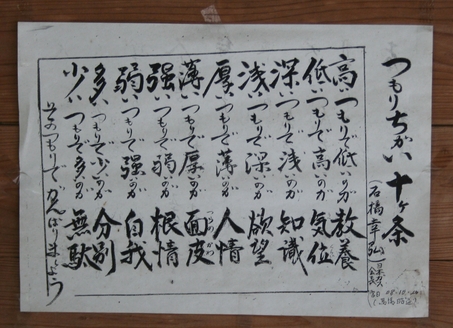 つもりちがい十ヶ条
(石橋幸弘)
高いつもりで低いのが教養
低いつもりで高いのが気位
深いつもりで浅いのが知識
浅いつもりで深いのが欲望
厚いつもりで薄いのが人情
薄いつもりで厚いのが面皮
强いつもりで弱いのが根情
弱いつもりで强いのが自我
多いつもりで少いのが分別
少いつもりで多のが無駄
そのつもりでがんばりましょう